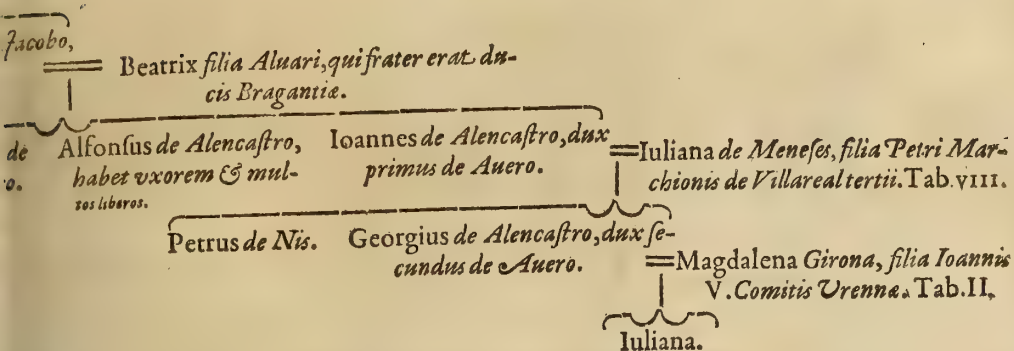 Jacobo,
Beatrix filia Aluari, qui frater erat du-
cis Bragantiæ.
de
o.
Alfonſus de Alencaſtro,
habet vxorem & mul-
tos liberos.
Ioannes de Alencaſtro, dux
primus de Auero.
Iuliana de Meneſes, filia Petri Mar-
chionis de Villareal tertii. Tab. VIII.
Petrus de Nis.
Georgius de Alencaſtro, dux ſe-
cundus de Auero.
Magdalena Girona, filia Ioannis
V. Comitis Vrennæ. Tab. II.
Iuliana.